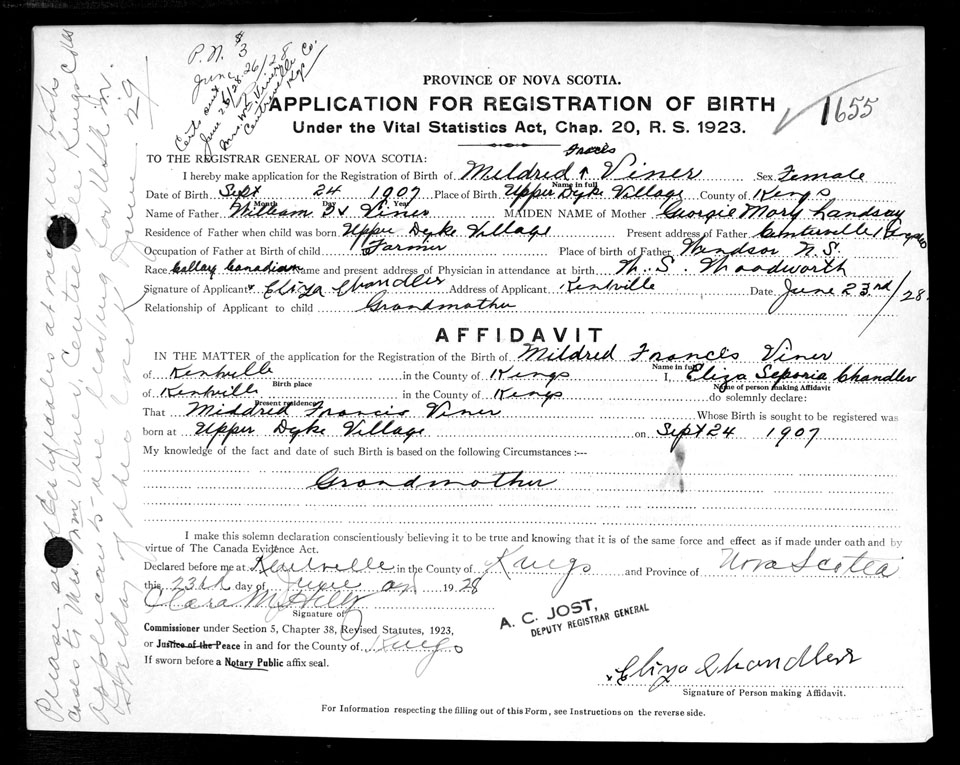 P.N. $3
June 26/28
Certs sent
June 26/28
Mrs. Wm. Viner
Centreville
Kgs Co.
1655
PROVINCE OF NOVA SCOTIA.
APPLICATION FOR REGISTRATION OF BIRTH
Under the Vital Statistics Act, Chap. 20, R. S. 1923.
TO THE REGISTRAR GENERAL OF NOVA SCOTIA:
I hereby make application for the Registration of Birth of Mildred Viner Sex Female
Name in full
Date of Birth Sept 24 1907 Place of Birth Upper Dyke Village County of Kings
Month Day Year
Name of Father William Viner MAIDEN NAME of Mother Georgie Mary
Residence of Father when child was born Upper Dyke Village Present address of Father Centerville
Occupation of Father at Birth of child Farmer Place of birth of Father Windsor N.S.
Race Canadian Name and present address of Physician in attendance at birth M. S. Woodworth
Signature of Applicant Eliza Chandler Address of Applicant Kentville Date June 23rd/28.
Relationship of Applicant to child Grandmother
AFFIDAVIT
IN THE MATTER of the application for the Registration of the Birth of Mildred Frances Viner
Name in full
of Kentville in the County of Kings I, Eliza Seporia Chandler
Birth place Name of person making Affidavit
of Kentville in the County of Kings do solemnly declare:
Present residence
That Mildred Francis Viner Whose Birth is sought to be registered was
born at Upper Dyke Village on Sept 24 1907
My knowledge of the fact and date of such Birth is based on the following Circumstances :---
Grandmother
I make this solemn declaration conscientiously believing it to be true and knowing that it is of the same force and effect as if made under oath and by
virtue of The Canada Evidence Act.
Declared before me at Kentville in the County of Kings and Province of Nova Scotia
this 23rd day of June 1928
Clara M
Signature of
Commissioner under Section 5, Chapter 38, Revised Statutes, 1923,
or Justice of the Peace in and for the County of Kings
If sworn before a Notary Public affix seal.
A. C. JOST,
DEPUTY REGISTRAR GENERAL
Eliza Chandler
Signature of Person making Affidavit.
For Information respecting the filling out of this Form, see Instructions on the reverse side.
Please send Certificates
to Mrs. Wm. Viner, Centreville Kings Co NS
applicants are leaving for
Friday of this week June 29